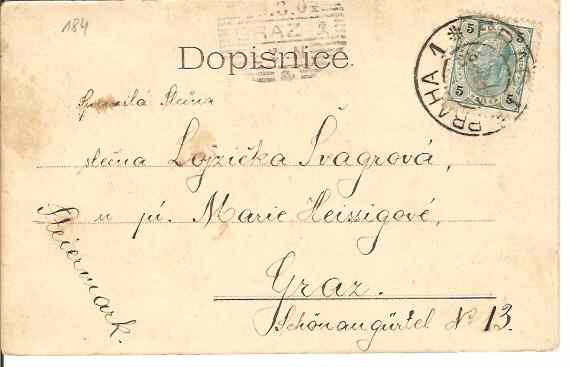 184
GRAZ
Dopisnice.
PRAHA 1
5 5
5 5
Spanilá Slečna
slečna Lojzička Švagrová,
u pí. Marie Heissigové,
Graz.
Schönaugürtel No 13.
Steiermark.